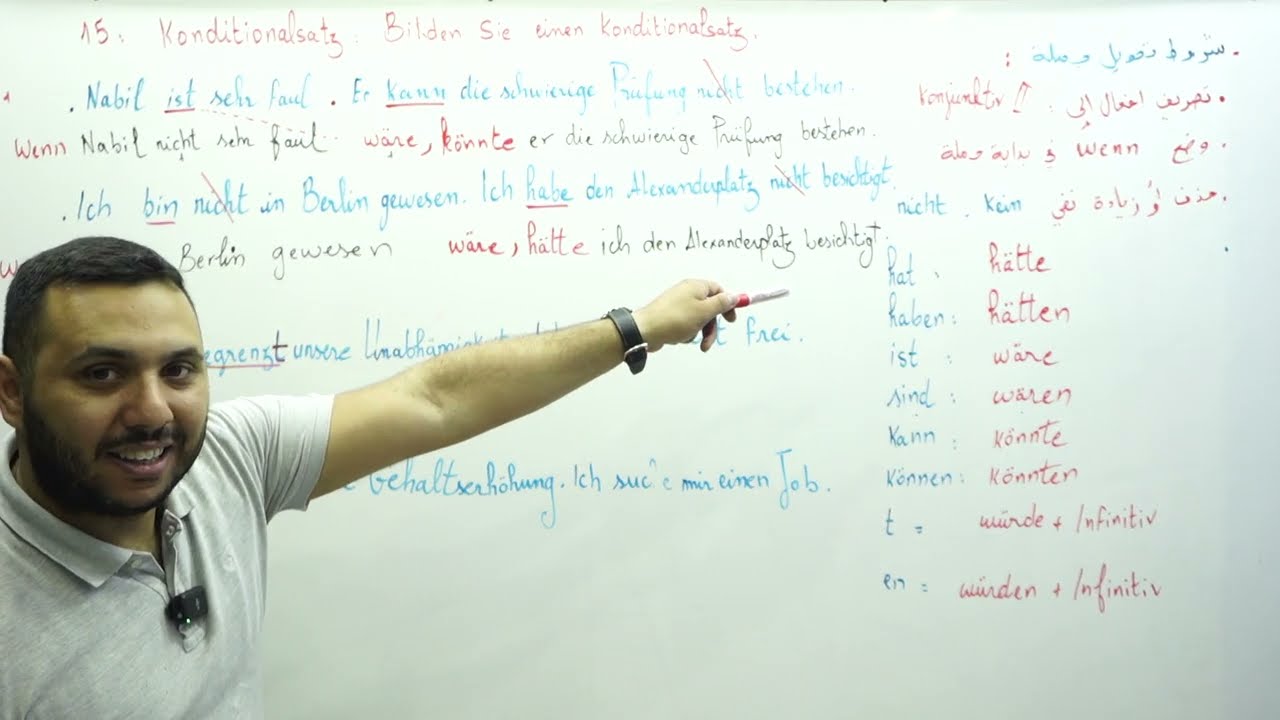 15: Konditionalsatz: Bilden Sie einen Konditionalsatz.
. Nabil ist sehr faul. Er kann die schwierige Prüfung nicht bestehen.
Wenn Nabil nicht sehr faul wäre, könnte er die schwierige Prüfung bestehen.
. Ich bin nicht in Berlin gewesen. Ich habe den Alexanderplatz nicht besichtigt.
Berlin gewesen wäre, hätte ich den Alexanderplatz besichtigt.
egrenzt unsere frei.
Gehaltserhöhung. Ich suche mir einen Job.
. شروط تحويل جملة :
. تصريف افعال إلى : Konjunktiv II
. وضع wenn في بداية جملة
. حذف أو زيادة نفي nicht . kein
hat : hätte
haben : hätten
ist : wäre
sind : wären
kann : könnte
können : könnten
t = würde + Infinitiv
en = würden + Infinitiv